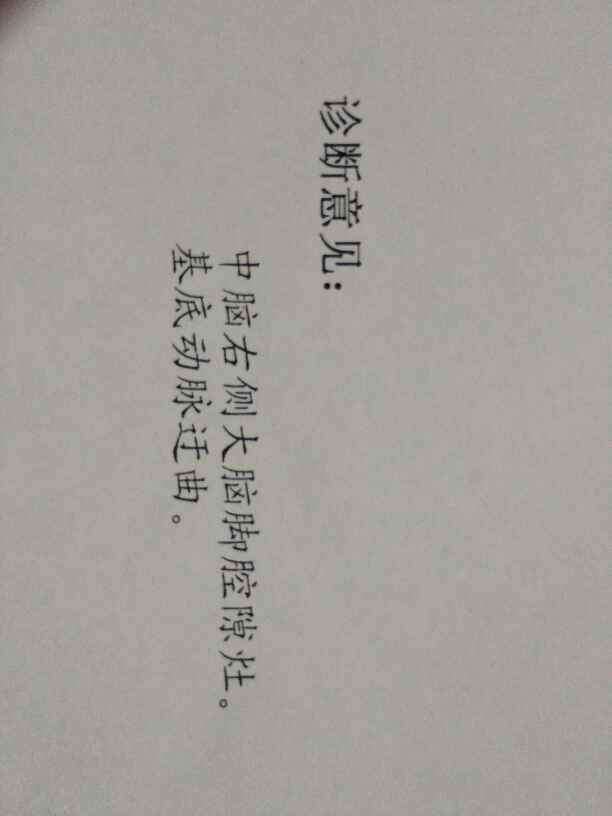 诊断意见：
中脑右侧大脑脚腔隙灶。
基底动脉迂曲。